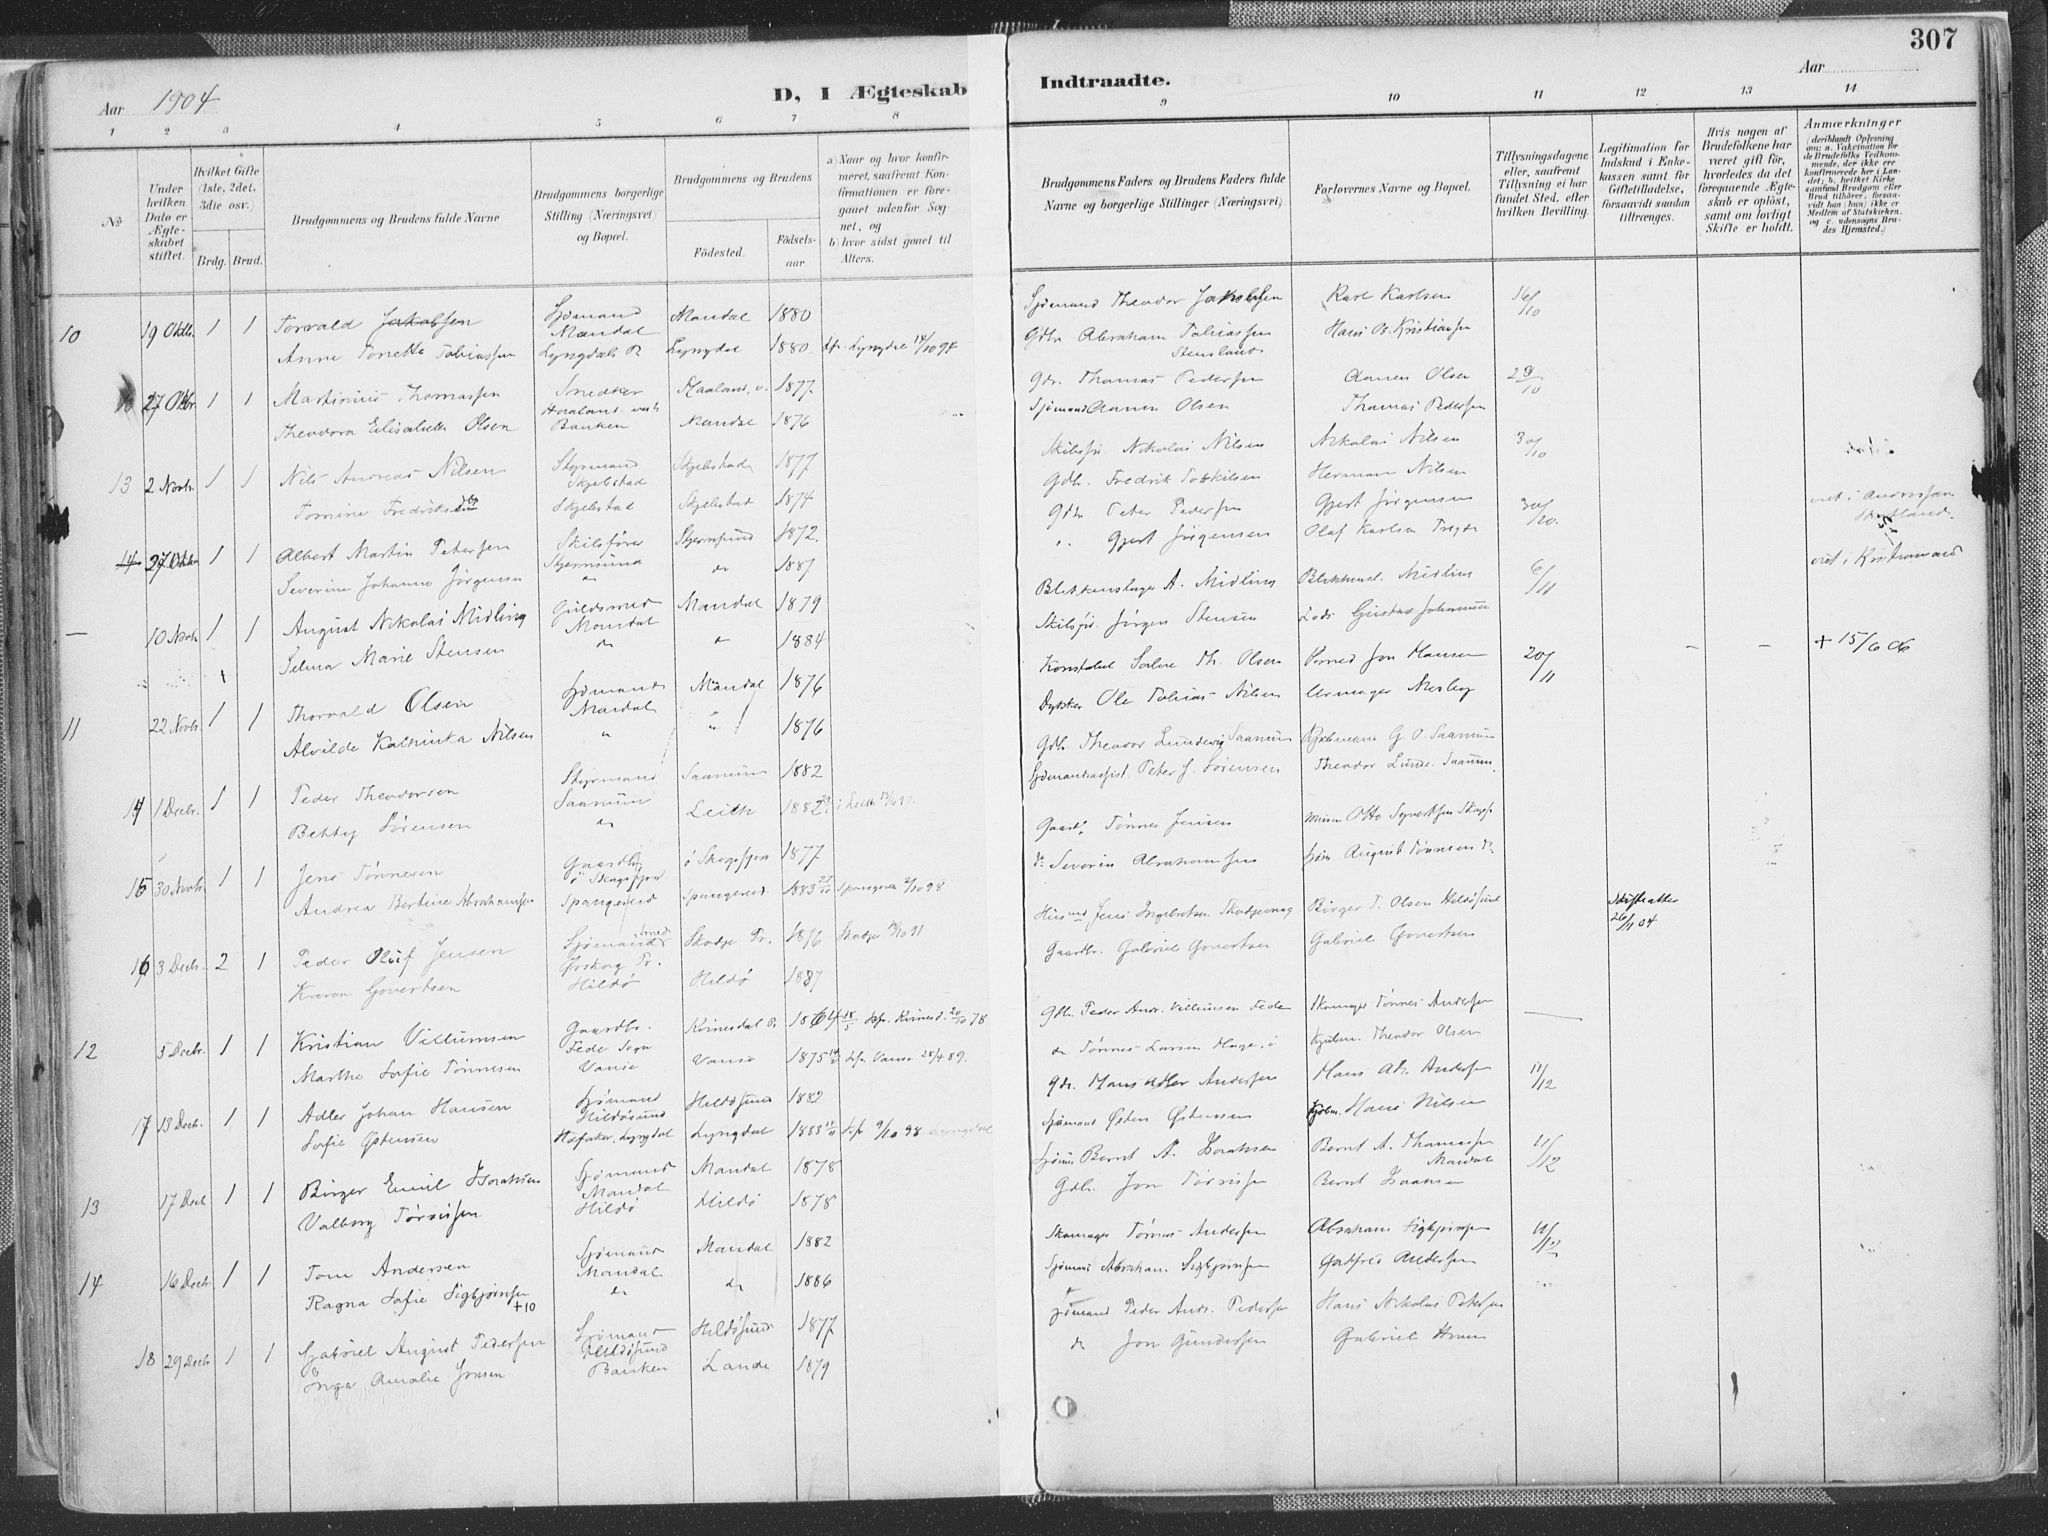 307
Aar 1904
D, I Ægteskab Indtraadte.
Aar
1 2 3 4 5 6 7 8 9 10 11 12 13 14
No
Under hvilken Dato er Ægteskabet stiftet.
Hvilket Gifte (1ste, 2det, 3die osv.)
Brdg. Brud.
Brudgommens og Brudens fulde Navne
Brudgommens borgerlige Stilling (Næringsvei) og Bopæl.
Brudgommens og Brudens
Födested.
Födselsaar.
a) Naar og hvor konfirmeret, saafremt Konfirmationen er foregaaet udenfor Sognet, og
b) hvor sidst gaaet til Alters.
Brudgommens Faders og Brudens Faders fulde Navne og borgerlige Stillinger (Næringsvei)
Forlovernes Navne og Bopæl.
Tillysningsdagene eller, saafremt Tillysning ei har fundet Sted, efter hvilken Bevilling.
Legitimation for Indskud i Enkekassen samt for Giftetilladelse, forsaavidt saadan tiltrænges.
Hvis nogen af Brudefolkene har været gift för, hvorledes da det foregaaende Ægteskab er oplöst, samt om lovligt Skifte er holdt.
Anmærkninger (deriblandt Oplysning om: a. Vakcination for de Brudefolks Vedkommende, der ikke ere konfirmerede her i Landet; b. hvilket Kirkesamfund Brudgom eller Brud tilhörer, forsaavidt han (hun) ikke er Medlem af Statskirken, og c. udensogns Brudes Hjemsted.)
10 19 Oktbr. 1 1 Torvald Jakobsen Sjømand Mandal Mandal 1880 Sjømand Theodor Jakobsen Karl Karlsen 16/10
Anne Tonette Tobiassen Lyngdals P. Lyngdal 1880 Lyngdal 14/10 94 Gdbr. Abraham Tobiassen Stensland Hans O. Kristiansen
27 Oktbr. 1 1 Martinius Thomassen Snedker Haaland v. 1877 Gdr. Thomas Pedersen Aanen Olsen 23/10
Theodora Elisabeth Olsen Banken Mandal 1876 Sjømand Aanen Olsen Thomas Pedersen
13 2 Novbr. 1 1 Nils Andreas Nilsen Styrmand Skjebstad Skjebstad 1877 Skibsfr. Nikolai Nilsen Nikolai Nilsen 30/10
Tomine Fredriksen Skjebstad Skjebstad 1874 Gdbr. Fredrik Herman Nilsen
14 1 1 Albert Martin Petersen Skibsfører Stjernsund Stjernsund 1872. Gdbr. Peter Pedersen Gjert Jörgensen 30/10. viet i Kristiansand
Severine Johanne Jörgensen do do 1887 " Gjert Jörgensen Olaf Karlsen Tregde
— 10 Novb 1 1 August Nikolai Midling Guldsmed Mandal Mandal 1879 Blikkenslager A. Midling Blikkensl. Midling 6/11
Selma Marie Stensen do " 1884 Skibsfør. Jörgen Stensen Lods Gustav Johannesen
11 22 Novbr. 1 1 Thorvald Olsen Sjømand Mandal Mandal 1876 Konstabel Salve Th. Olsen Jon Hansen 20/11 – – + 15/6 06
Alvilde Kathinka Nilsen " " 1876 Dykker Ole Tobias Nilsen Urmager
14 1 Decbr. 1 1 Peder Theodorsen Styrmand Saanum Saanum 1882 Gdbr. Theodor Lundevig Saanum G. O. Saanum
Betty Sörensen do Leith 1882 i Leith Sjømandsassist. Peter J. Sörensen Theodor Lunde. Saanum.
15 30 Novbr. 1 1 Jens Tönnesen Gaardbr. Skogsfjord Skogsfjord 1877 Gaardbr. Tönnes Jensen Otto Syvertsen
Andrea Bertine Abrahamsen Spangereid Spangereid 1883 Spangereid 2/10 98 do Severin Abrahamsen August Tönnesen
16 3 Decbr. 2 1 Peder Oluf Jensen Sjømand Ørskog Pr. Skodje Pr. 1876 Skodje 91 Jens Ingebretsen Birger T. Olsen Hildösund Skifteatter 26/1 04
Karen Govertsen Hildö Hildö 1887 Gaardbr. Gabriel Govertsen Gabriel Govertsen
12 5 Decbr. 1 1 Kristian Villumsen Gaardbr. Fede Sogn Kvinesdal P. 1864 18/5 Kvinesd. 20/10 78 Gdbr. Peder Andr. Villumsen Fede Skomager Tönnes Andersen —
Marthe Sofie Tönnesen Vanse Vanse 1875 Vanse 28/4 89. do Tönnes Larsen Theodor Olsen
17 13 Decbr. 1 1 Adler Johan Hansen Sjømand Hildösund Hildösund 1882 Gdr. Hans Adler Andersen Hans Adr. Andersen 11/12
Sofie Østensen Lyngdal Lyngdal 1883 9/10 98 Lyngdal Sjømand Østen Østensen Hans Nilsen
13 17 Decb 1 1 Birger Emil Isaksen Sjømand Mandal Mandal 1878 Bernt A. Isaksen Bernt A. Thomassen Mandal 11/12
Valborg Törrisen Hildö Hildö 1878 Gdbr. Jon Törrisen Bernt Isaksen
14 16 Decbr. 1 1 Tom Andersen Sjømand Mandal Mandal 1882 Skomager Tönnes Andersen Abraham Sigbjörnsen 11/12
Ragna Sofie Sigbjörnsen +10 do do 1886 Sjømand Abraham Sigbjörnsen Gotfred Andersen
18 29 Decbr 1 1 Gabriel August Pedersen Sjømand Hildösund Hildösund 1877 Sjømand Peder Andr. Pedersen Hans Nikolai Petersen
Inga Amalie Jonsen Banken Lande 1879 do Jon Gundersen Gabriel